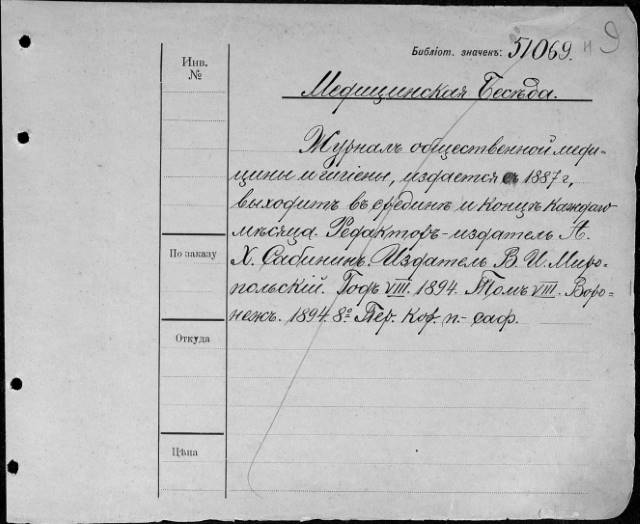 Библіот. значекъ: 51069. н 9
Инв.
№
Медицинская Бесѣда.
Журналъ общественной меди-
цины и гигіены, издается съ 1887 г,
выходитъ въ срединѣ и концѣ каждаго
мѣсяца. Редакторъ-издатель А.
По заказу
Х. Сабининъ. Издатель В. И. Миро-
польскій. Годъ VIII. 1894. Томъ VIII. Воро-
нежъ. 1894. 8° Пер. Кор. п.- саф.
Откуда
Цѣна